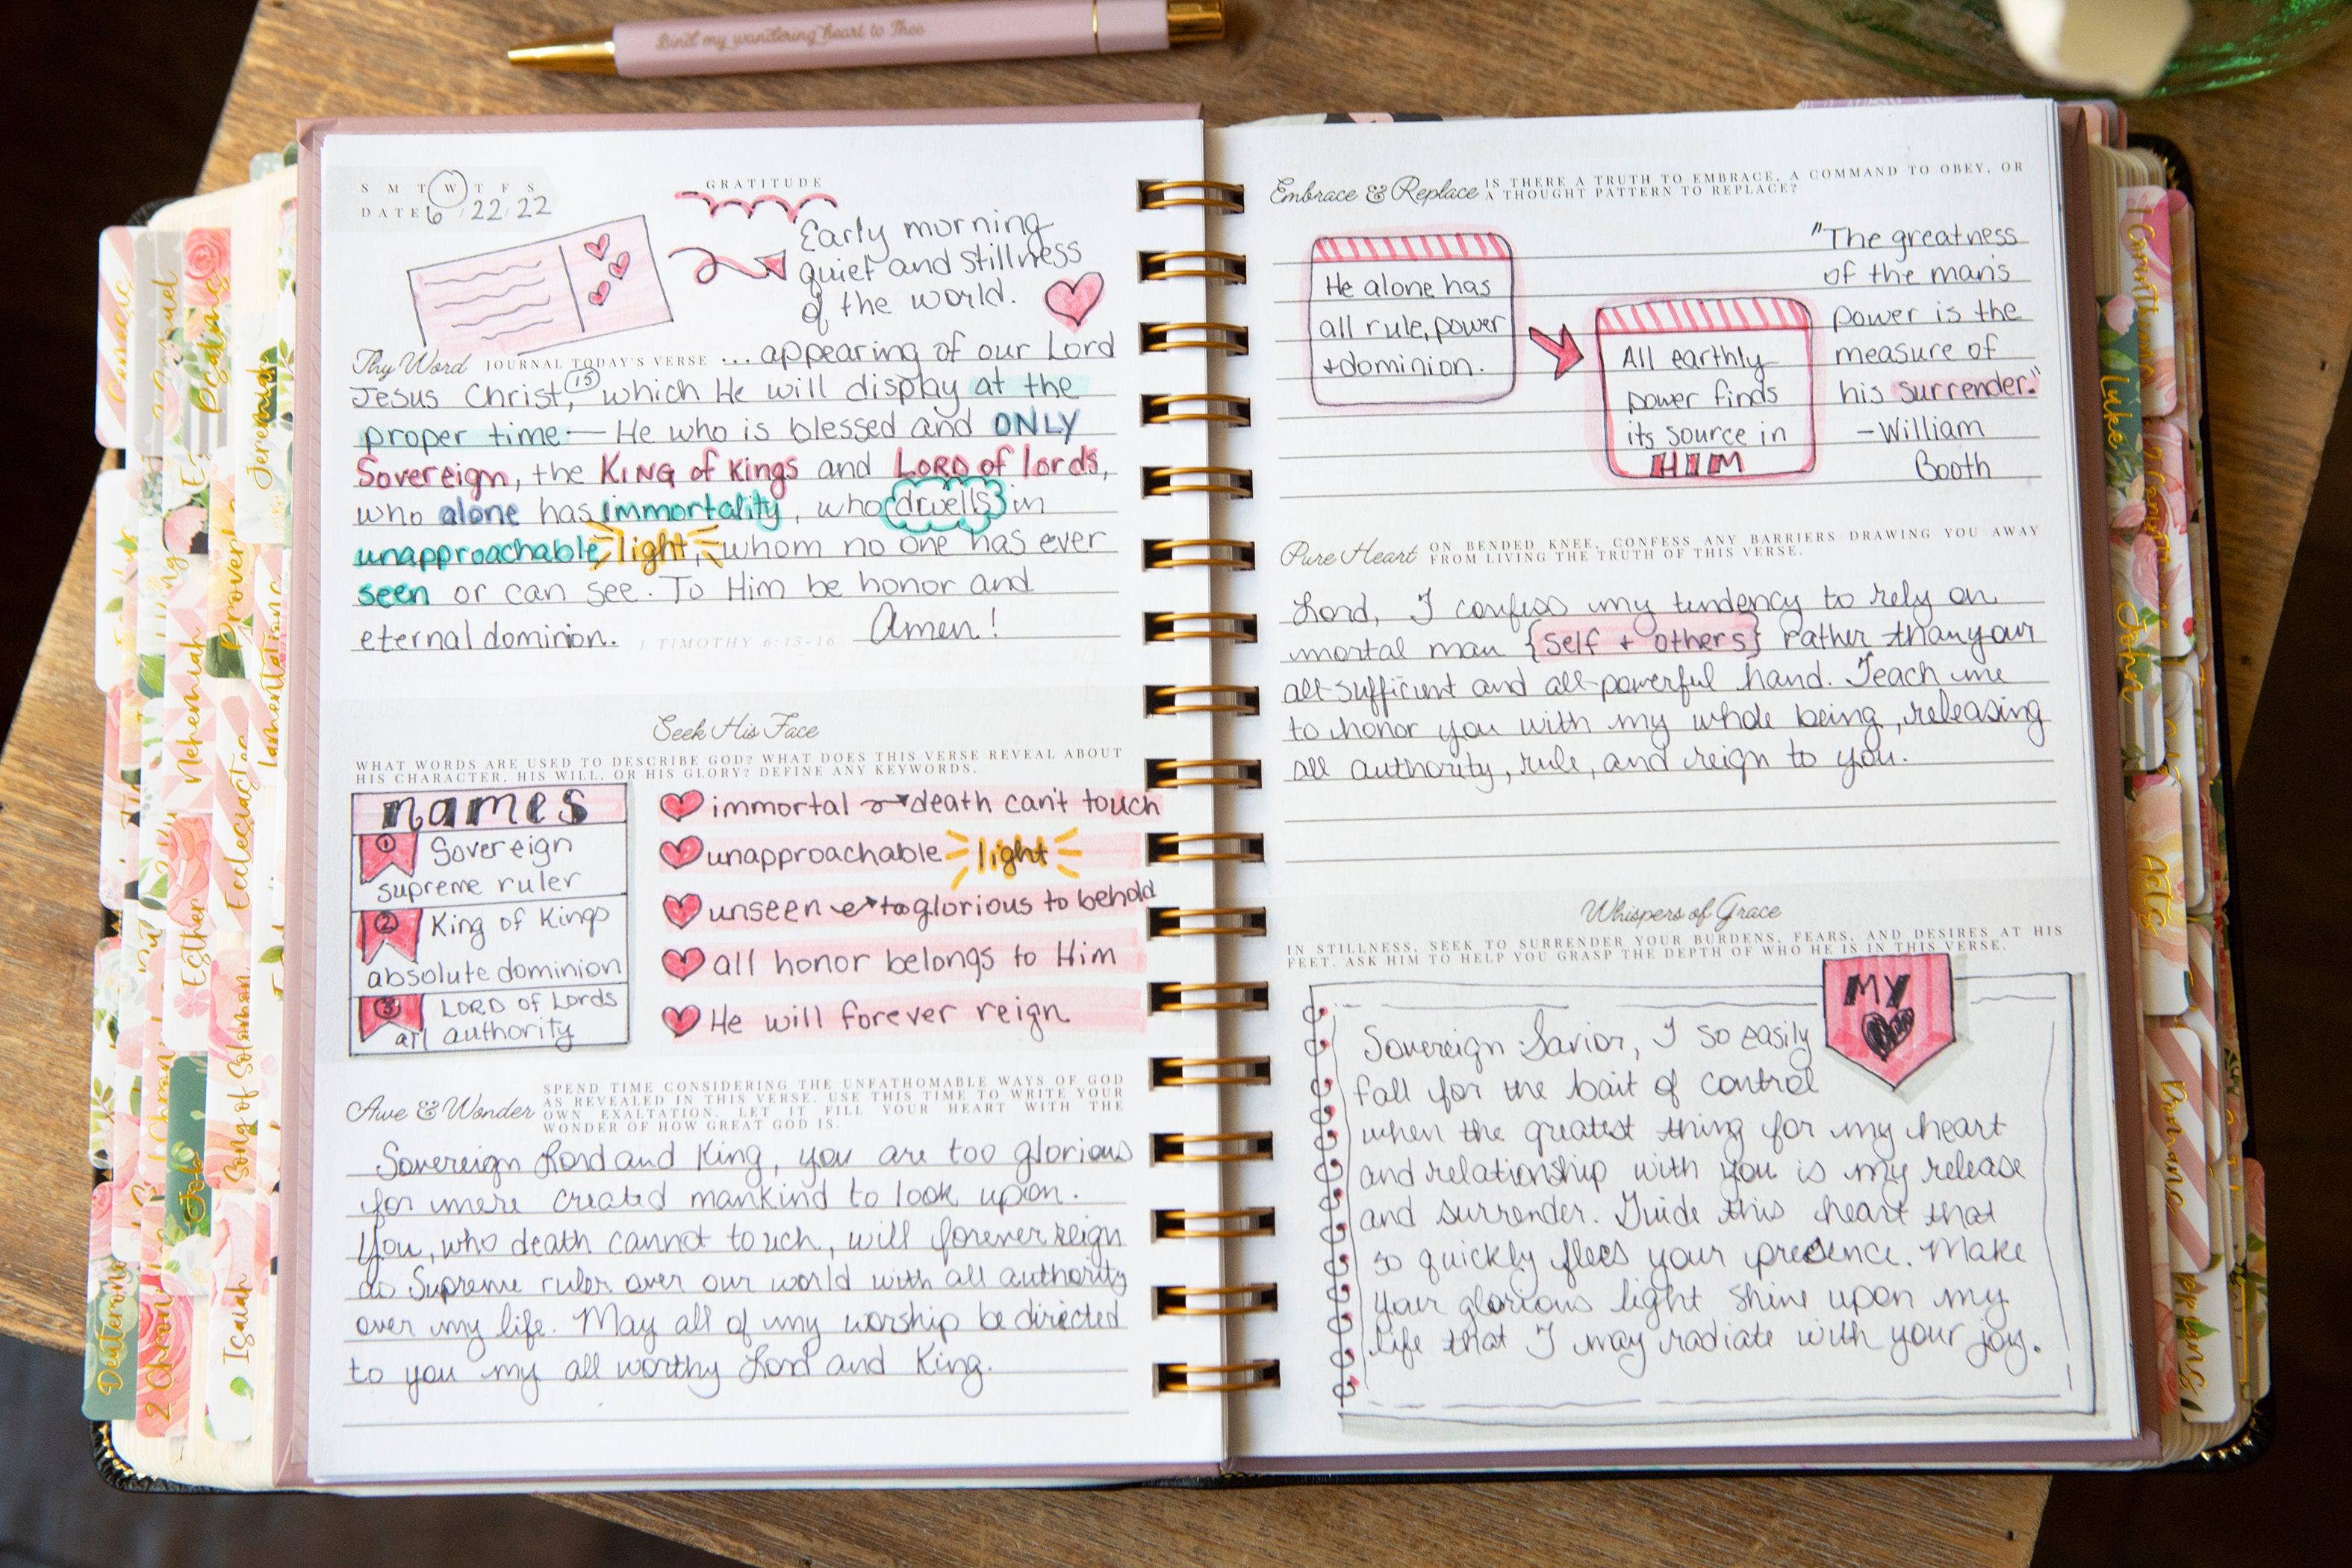 Bind my wandering heart to Thee
S M T W T F S
DATE 6/22/22
GRATITUDE
Early morning
quiet and stillness
of the world.
Thy Word JOURNAL TODAY'S VERSE ...appearing of our Lord
Jesus Christ, (15) which He will display at the
proper time — He who is blessed and ONLY
Sovereign, the KING of Kings and LORD of lords,
who alone has immortality, who dwells in
unapproachable light, whom no one has ever
seen or can see. To Him be honor and
eternal dominion. 1 TIMOTHY 6:15-16 Amen!
Seek His Face
WHAT WORDS ARE USED TO DESCRIBE GOD? WHAT DOES THIS VERSE REVEAL ABOUT
HIS CHARACTER, HIS WILL, OR HIS GLORY? DEFINE ANY KEYWORDS.
names
1 Sovereign
supreme ruler
2 King of Kings
absolute dominion
3 LORD of Lords
all authority
immortal → death can't touch
unapproachable light
unseen → too glorious to behold
all honor belongs to Him
He will forever reign
Awe & Wonder
SPEND TIME CONSIDERING THE UNFATHOMABLE WAYS OF GOD
AS REVEALED IN THIS VERSE. USE THIS TIME TO WRITE YOUR
OWN EXALTATION. LET IT FILL YOUR HEART WITH THE
WONDER OF HOW GREAT GOD IS.
Sovereign Lord and King, you are too glorious
for mere created mankind to look upon.
You, who death cannot touch, will forever reign
as Supreme ruler over our world with all authority
over my life. May all of my worship be directed
to you my all worthy Lord and King.
Embrace & Replace IS THERE A TRUTH TO EMBRACE, A COMMAND TO OBEY, OR
A THOUGHT PATTERN TO REPLACE?
He alone has
all rule, power
+ dominion.
All earthly
power finds
its source in
HIM
"The greatness
of the man's
power is the
measure of
his surrender."
-William
Booth
Pure Heart ON BENDED KNEE, CONFESS ANY BARRIERS DRAWING YOU AWAY
FROM LIVING THE TRUTH OF THIS VERSE.
Lord, I confess my tendency to rely on
mortal man {self + others} rather than your
all-sufficient and all-powerful hand. Teach me
to honor you with my whole being, releasing
all authority, rule, and reign to you.
Whispers of Grace
IN STILLNESS, SEEK TO SURRENDER YOUR BURDENS, FEARS, AND DESIRES AT HIS
FEET. ASK HIM TO HELP YOU GRASP THE DEPTH OF WHO HE IS IN THIS VERSE.
MY
Sovereign Savior, I so easily
fall for the bait of control
when the greatest thing for my heart
and relationship with you is my release
and surrender. Guide this heart that
so quickly flees your presence. Make
your glorious light shine upon my
life that I may radiate with your joy.
Jeremiah
Proverbs
Lamentations
Nehemiah
Ecclesiastes
Esther
Song of Solomon
Job
Isaiah
Luke
John
Acts
Romans